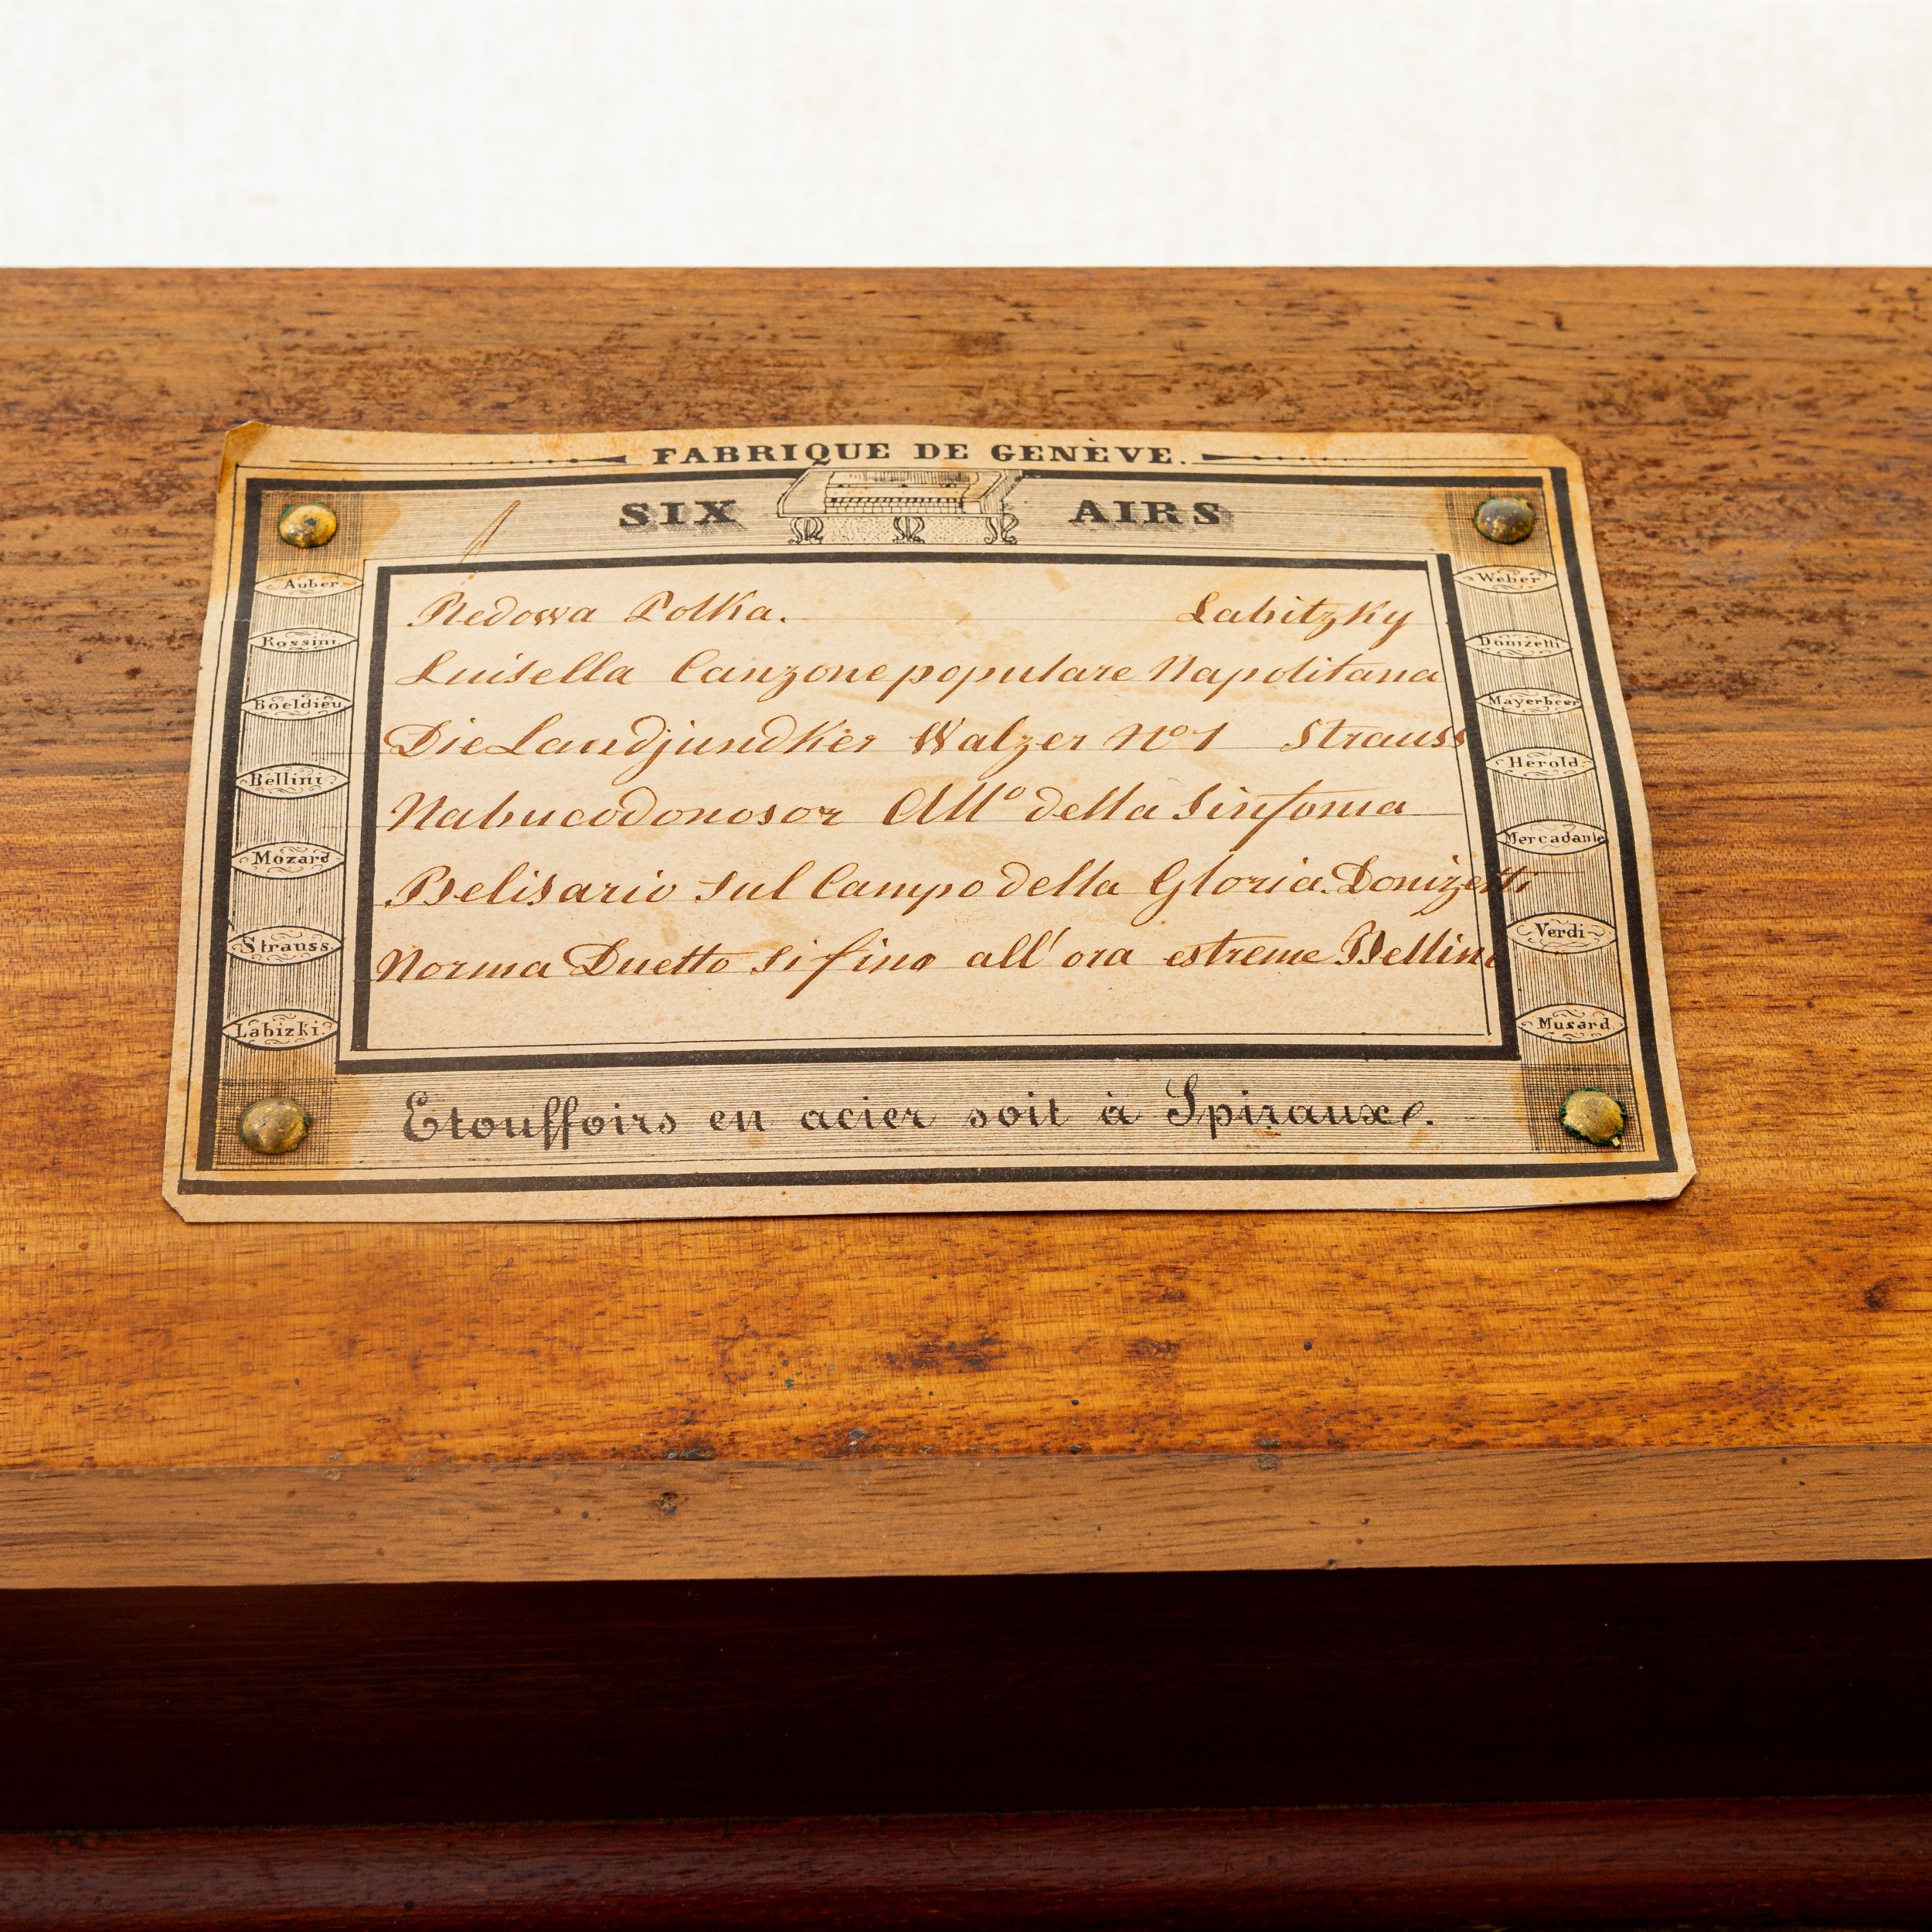 FABRIQUE DE GENÈVE.
SIX AIRS
Auber
Rossini
Boeldieu
Bellini
Mozard
Strauss
Labizki.
Redowa Polka. Labitzky
Luisella Canzone populare Napolitana
Die Landjundker Walzer No 1 Strauss
Nabucodonosor All° della Sinfonia
Belisario Sul Campo della Gloria. Donizetti
Norma Duetto Si fino all' ora estreme Bellini
Weber
Donizetti
Mayerbeer
Herold.
Mercadante
Verdi
Musard
Etouffoirs en acier soit à Spiraux.